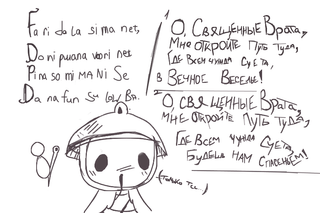 Fa ri do la si ma net,
Do ni puana voni net
Pi na so mi MA Ni Se
Da na fun Sa
1 О, Священные Врата,
Мне откройте путь туда,
Где всем чужда суета,
в Вечное Веселье!
2 О, священные Врата,
мне откройте путь туда,
Где Всем чужда Суета,
Будешь нам
(только ты.)